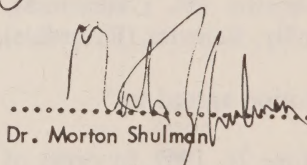 ..............................
Dr. Morton Shulman